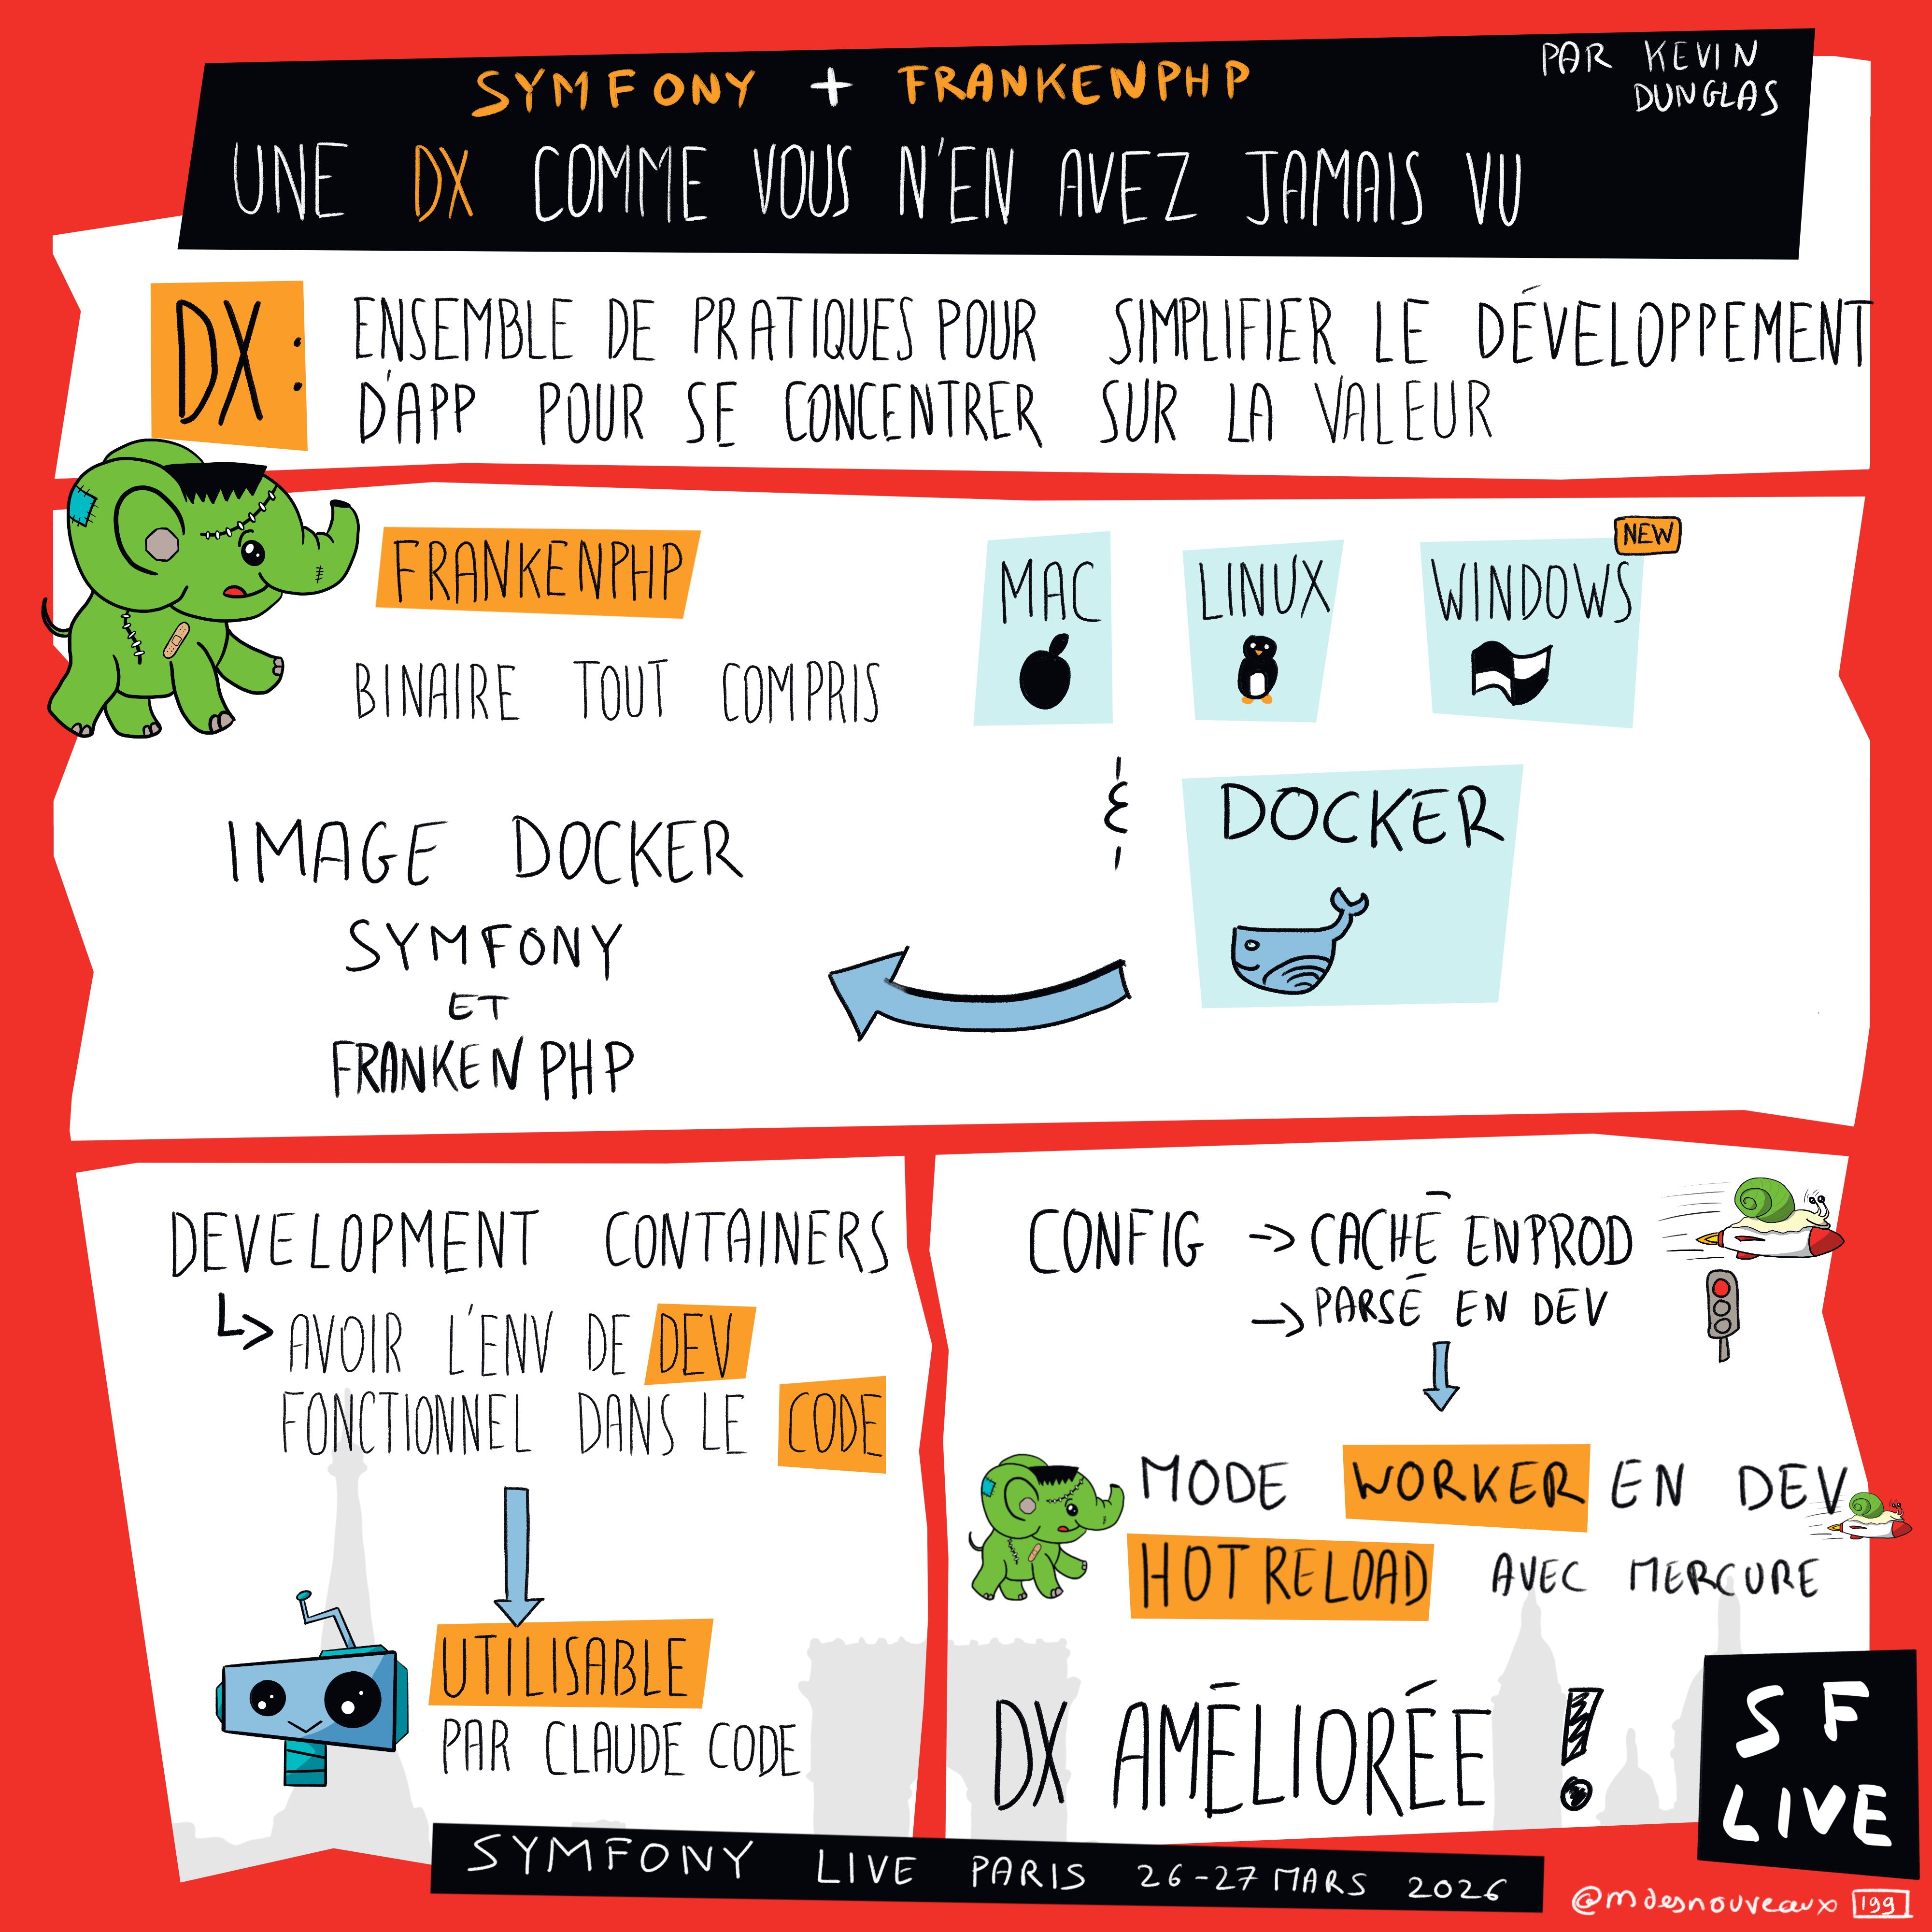 SYMFONY + FRANKENPHP
PAR KEVIN
DUNGLAS
UNE DX COMME VOUS N'EN AVEZ JAMAIS VU
DX :
ENSEMBLE DE PRATIQUES POUR SIMPLIFIER LE DÉVELOPPEMENT
D'APP POUR SE CONCENTRER SUR LA VALEUR
FRANKENPHP
BINAIRE TOUT COMPRIS
MAC
LINUX
WINDOWS
NEW
&
DOCKER
IMAGE DOCKER
SYMFONY
ET
FRANKENPHP
DEVELOPMENT CONTAINERS
↳ AVOIR L'ENV DE DEV
FONCTIONNEL DANS LE CODE
UTILISABLE
PAR CLAUDE CODE
CONFIG → CACHÉ EN PROD
→ PARSÉ EN DEV
MODE WORKER EN DEV
HOT RELOAD AVEC MERCURE
DX AMÉLIORÉE !
SF
LIVE
SYMFONY LIVE PARIS 26-27 MARS 2026
@mdesnouveaux 199